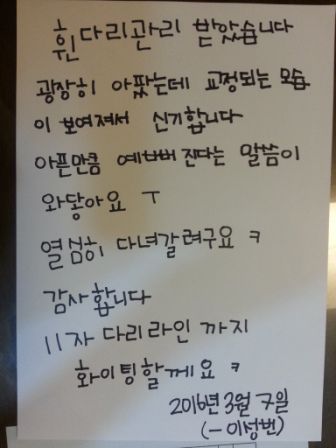 휜다리관리 받았습니다
굉장히 아팠는데 교정되는 모습
이 보여져서 신기합니다
아픈만큼 예뻐진다는 말씀이
와닿아요 ㅜ
열심히 다녀갈려구요 ㅋ
감사합니다
11자 다리라인 까지
화이팅할께요 ㅋ
2016년 3월 7일
(-이성번)